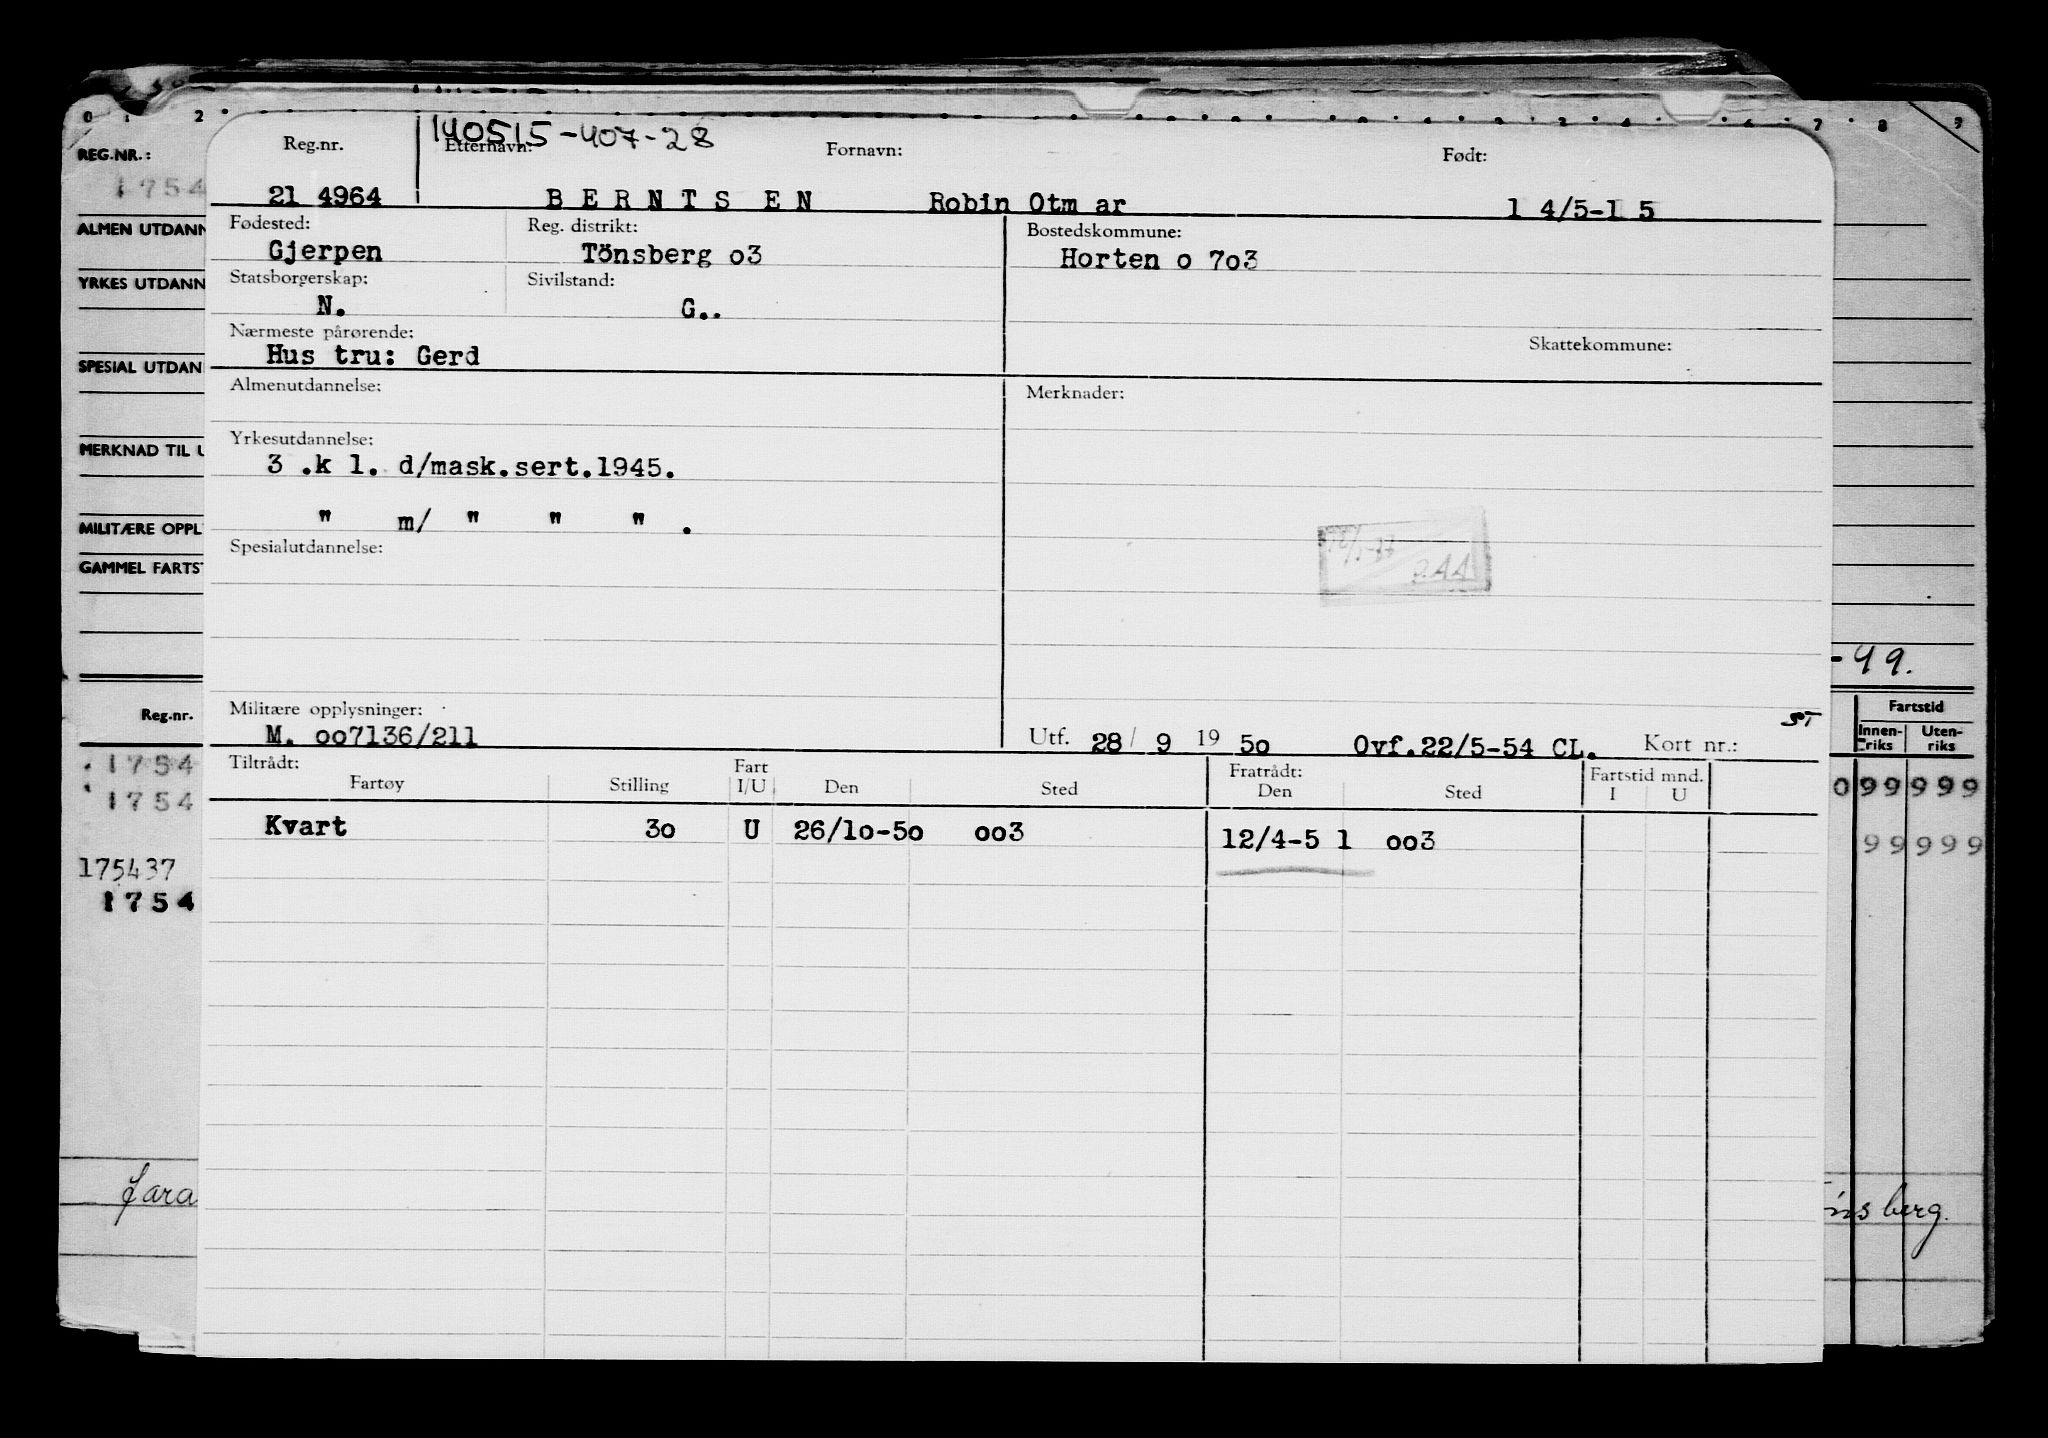 0 1 2 7 8 9
140515-407-28
REG.NR.: Reg.nr. Etternavn: Fornavn: Født:
1754 21 4964 B E R N T S E N Robin Otm ar 1 4/5-1 5
ALMEN UTDANN Fødested: Reg. distrikt: Bostedskommune:
Gjerpen Tönsberg o3 Horten o 7o3
YRKES UTDANN Statsborgerskap: Sivilstand:
N. G..
Nærmeste pårørende: Skattekommune:
SPESIAL UTDAN Hus tru: Gerd
Almenutdannelse: Merknader:
MERKNAD TIL U Yrkesutdannelse:
3 .k l. d/mask.sert.1945.
MILITÆRE OPPL " m/ " " " .
GAMMEL FARTST Spesialutdannelse:
-49.
Reg.nr. Militære opplysninger: ST Fartstid
M. oo7136/211 Utf. 28/ 9 19 5o Ovf.22/5-54 CL. Kort nr.: Innen-riks Uten-riks
1754 Tiltrådt: Fart Fratrådt: Fartstid mnd.
Fartøy Stilling I/U Den Sted Den Sted I U 0 99 999
1754
Kvart 3o U 26/1o-5o oo3 12/4-5 1 oo3 99 999
175437
1754